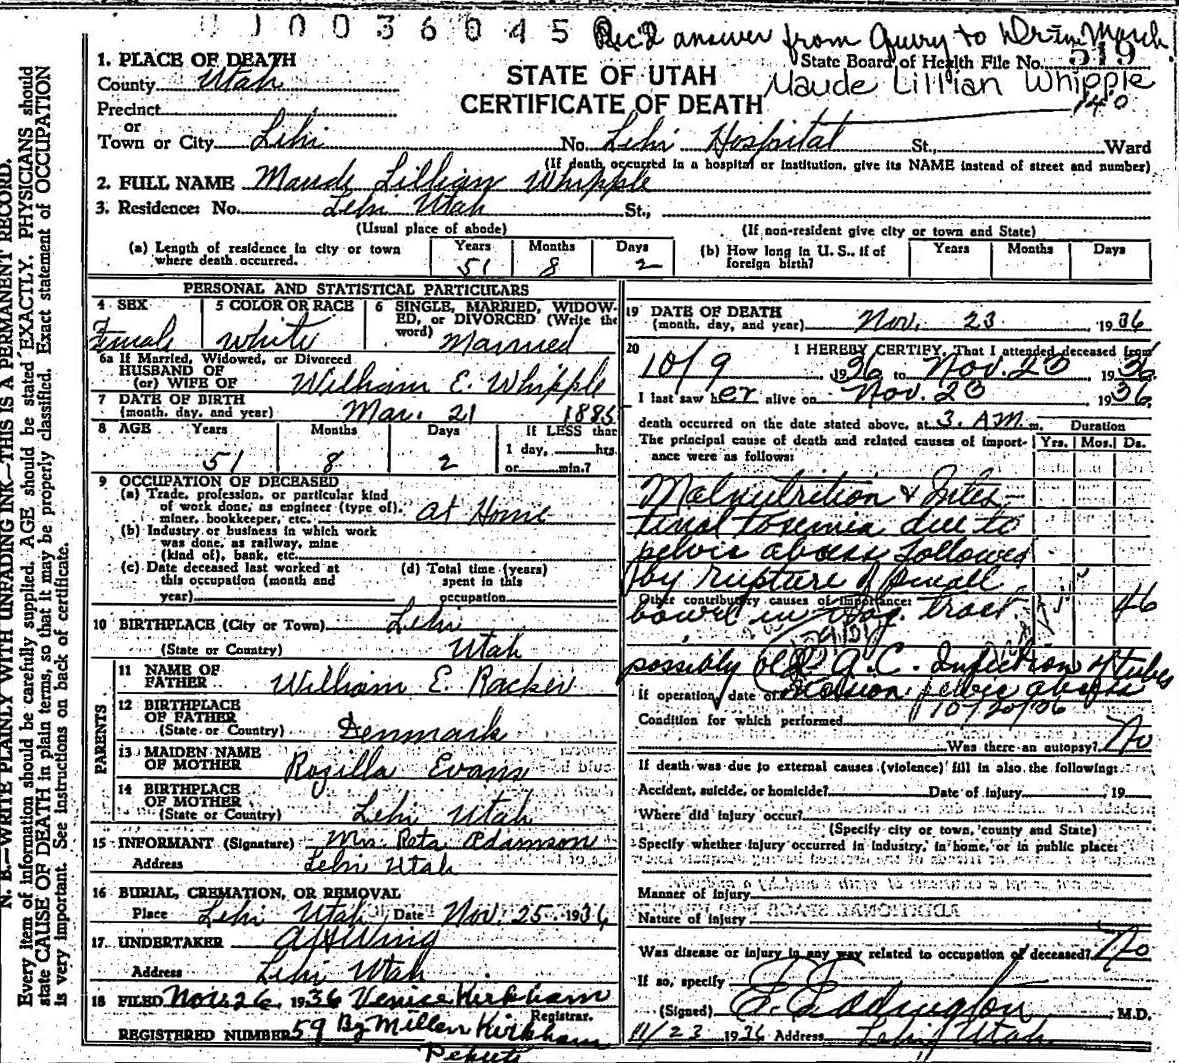 0 1 0 0 3 6 0 4 5 Rec'd answer from Query to Dr in March
State Board of Health File No. 519
Maude Lillian Whipple
140
STATE OF UTAH
CERTIFICATE OF DEATH
1. PLACE OF DEATH
County Utah
Precinct
or
Town or City Lehi No. Lehi Hospital St., Ward
(If death occurred in a hospital or institution, give its NAME instead of street and number)
2. FULL NAME Maude Lillian Whipple
3. Residence: No. Lehi Utah St.,
(Usual place of abode) (If non-resident give city or town and State)
(a) Length of residence in city or town where death occurred. Years 51 Months 8 Days 2
(b) How long in U. S., if of foreign birth? Years Months Days
N. B.—WRITE PLAINLY WITH UNFADING INK—THIS IS A PERMANENT RECORD.
Every item of information should be carefully supplied. AGE should be stated EXACTLY. PHYSICIANS should
state CAUSE OF DEATH in plain terms, so that it may be properly classified. Exact statement of OCCUPATION
is very important. See instructions on back of certificate.
PERSONAL AND STATISTICAL PARTICULARS
4 SEX Female
5 COLOR OR RACE white
6 SINGLE, MARRIED, WIDOWED, or DIVORCED (Write the word) Married
6a If Married, Widowed, or Divorced
HUSBAND OF
(or) WIFE OF William E. Whipple
7 DATE OF BIRTH
(month, day, and year) Mar. 21 1885
8 AGE Years 51 Months 8 Days 2 If LESS than 1 day, hrs. or min.?
9 OCCUPATION OF DECEASED
(a) Trade, profession, or particular kind
of work done, as engineer (type of),
miner, bookkeeper, etc. at Home
(b) Industry or business in which work
was done, as railway, mine
(kind of), bank, etc.
(c) Date deceased last worked at
this occupation (month and
year)
(d) Total time (years)
spent in this
occupation
10 BIRTHPLACE (City or Town) Lehi
(State or Country) Utah
PARENTS
11 NAME OF
FATHER William E. Racker
12 BIRTHPLACE
OF FATHER
(State or Country) Denmark
13 MAIDEN NAME
OF MOTHER Rozilla Evans
14 BIRTHPLACE
OF MOTHER
(State or Country) Lehi Utah
15 INFORMANT (Signature) Mrs. Reta Adamson
Address Lehi Utah
16 BURIAL, CREMATION, OR REMOVAL
Place Lehi Utah Date Nov. 25 1936
17 UNDERTAKER A H Wing
Address Lehi Utah
18 FILED Nov. 26, 1936 Venice Kirkham
Registrar.
REGISTERED NUMBER 59 By Millen Kirkham
Deputy
19 DATE OF DEATH
(month, day, and year) Nov. 23, 1936
20 I HEREBY CERTIFY, That I attended deceased from
10/9 1936 to Nov. 23 1936
I last saw her alive on Nov. 23 1936
death occurred on the date stated above, at 3. A.M. m. Duration
The principal cause of death and related causes of importance were as follows: Yrs. Mos. Ds.
Malnutrition & Intes-
tinal toxemia due to
pelvic abcess followed
by rupture of small
Other contributory causes of importance:
bowel in Vag. tract 46
possibly old G.C. Infection of tubes
If operation, date of Incision pelvic abcess
10/20/36
Condition for which performed
Was there an autopsy? No
If death was due to external causes (violence) fill in also the following:
Accident, suicide, or homicide? Date of injury 19
Where did injury occur?
(Specify city or town, county and State)
Specify whether injury occurred in industry, in home, or in public place:
Manner of injury
Nature of injury
Was disease or injury in any way related to occupation of deceased? No
If so, specify
(Signed) E. Eddington M.D.
11/23 1936 Address Lehi Utah